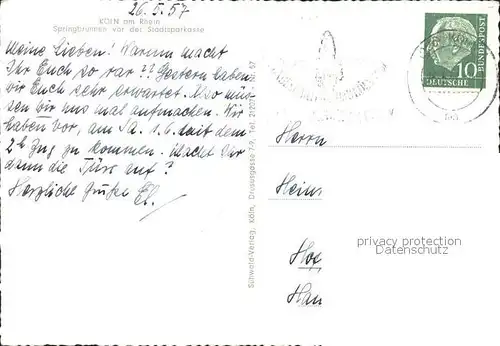 26.5.57
KÖLN am Rhein
Springbrunnen vor der Stadtsparkasse
Meine Lieben! Warum macht
Ihr Euch so rar?? Gestern haben
wir Euch sehr erwartet. Also müs-
sen wir uns mal aufmachen. Wir
haben vor, am Sa. 1.6. mit dem
2h Zug zu kommen. Macht Ihr
dann die Türe auf?
Herzliche Grüße El.
Schwald-Verlag, Köln, Drususgasse 7-9, Tel.
Herrn
Heinr
Hof
Han
privacy protection
Datenschutz
DEUTSCHE
BUNDESPOST
10